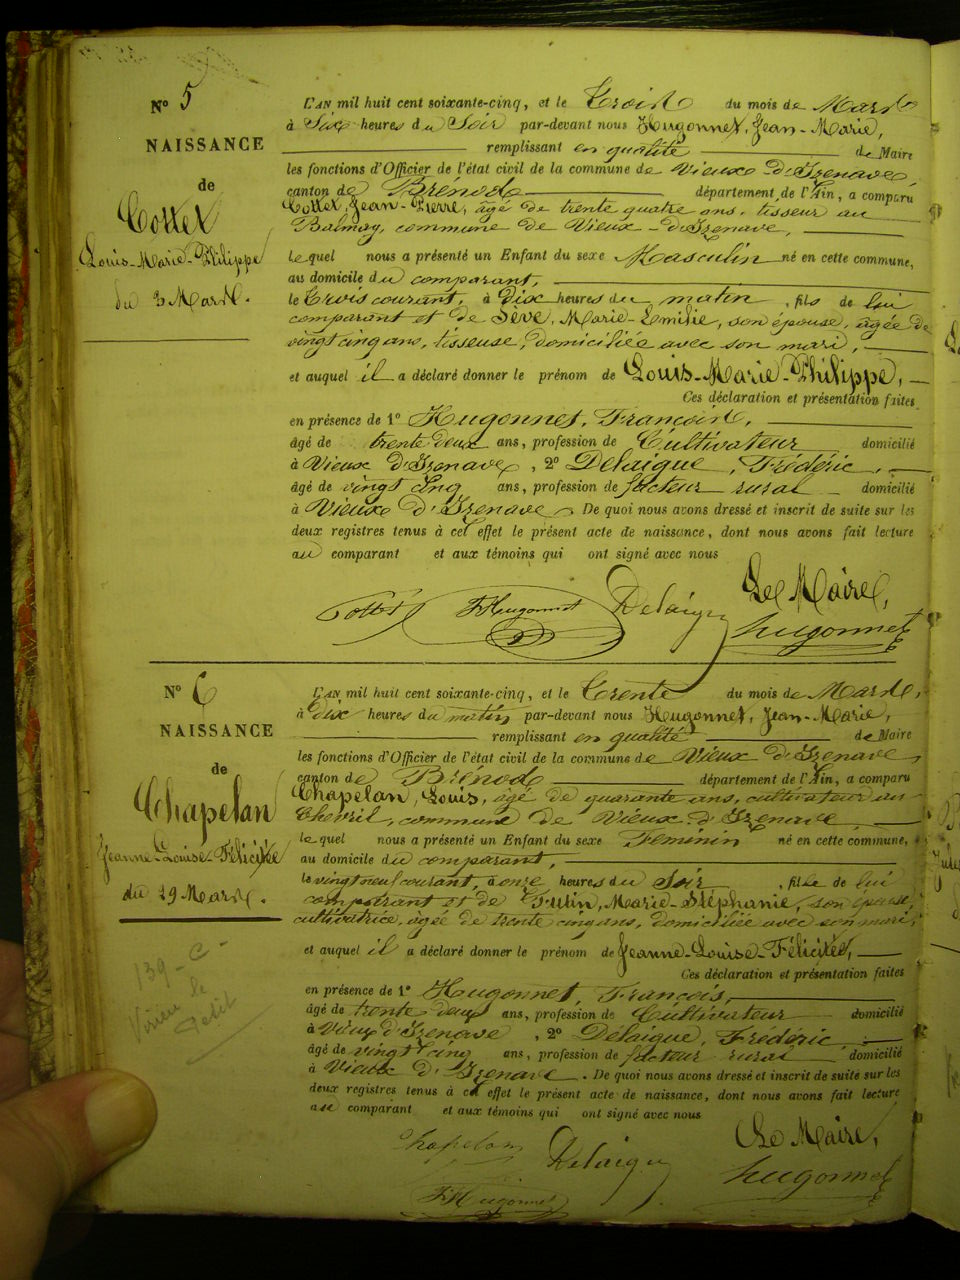 N° 5
NAISSANCE
de
Cottet
Louis-Marie-Philippe
du 3 Mars.
L'AN mil huit cent soixante-cinq, et le Trois du mois de Mars
à Six heures du Soir par-devant nous Hugonnet, Jean-Marie,
remplissant en qualité de Maire
les fonctions d'Officier de l'état civil de la commune de Vieux d'Izenave,
canton de Brenod département de l'Ain, a comparu
Cottet, Jean-Pierre, âgé de trente quatre ans, tisseur au
Balmay, commune de Vieux-d'Izenave,
lequel nous a présenté un Enfant du sexe Masculin né en cette commune,
au domicile du comparant,
le trois courant, à Dix heures du matin, fils de lui
comparant et de Sève, Marie-Emilie, son épouse, âgée de
vingt cinq ans, tisseuse, domiciliée avec son mari,
et auquel il a déclaré donner le prénom de Louis-Marie-Philippe,
Ces déclaration et présentation faites
en présence de 1° Hugonnet, François,
âgé de trente deux ans, profession de Cultivateur domicilié
à Vieux d'Izenave, 2° Delaigue, Frédéric,
âgé de vingt cinq ans, profession de facteur rural domicilié
à Vieux d'Izenave. De quoi nous avons dressé et inscrit de suite sur les
deux registres tenus à cet effet le présent acte de naissance, dont nous avons fait lecture
au comparant et aux témoins qui ont signé avec nous
Le Maire,
Cottet FHugonnet Delaigue Hugonnet
N° 6
NAISSANCE
de
Chapelan
Jeanne-Louise-Félicitée
du 29 Mars.
139-C-
Virieu le
Petit
L'AN mil huit cent soixante-cinq, et le Trente du mois de Mars,
à Dix heures du matin par-devant nous Hugonnet, Jean-Marie,
remplissant en qualité de Maire
les fonctions d'Officier de l'état civil de la commune de Vieux d'Izenave,
canton de Brénod département de l'Ain, a comparu
Chapelan, Louis, âgé de quarante ans, cultivateur au
Chevril, commune de Vieux-d'Izenave
lequel nous a présenté un Enfant du sexe Féminin né en cette commune,
au domicile du comparant,
le vingt neuf courant, à onze heures du Soir, fille de lui
comparant et de Marie-Stéphanie, son épouse,
cultivatrice, âgée de trente cinq ans, domiciliée avec son mari,
et auquel il a déclaré donner le prénom de Jeanne-Louise-Félicitée,
Ces déclaration et présentation faites
en présence de 1° Hugonnet, François,
âgé de trente deux ans, profession de Cultivateur domicilié
à Vieux d'Izenave, 2° Délaigue, Frédéric,
âgé de vingt cinq ans, profession de facteur rural domicilié
à Vieux d'Izenave. De quoi nous avons dressé et inscrit de suite sur les
deux registres tenus à cet effet le présent acte de naissance, dont nous avons fait lecture
au comparant et aux témoins qui ont signé avec nous
Le Maire,
Chapelan Delaigue Hugonnet
FHugonnet